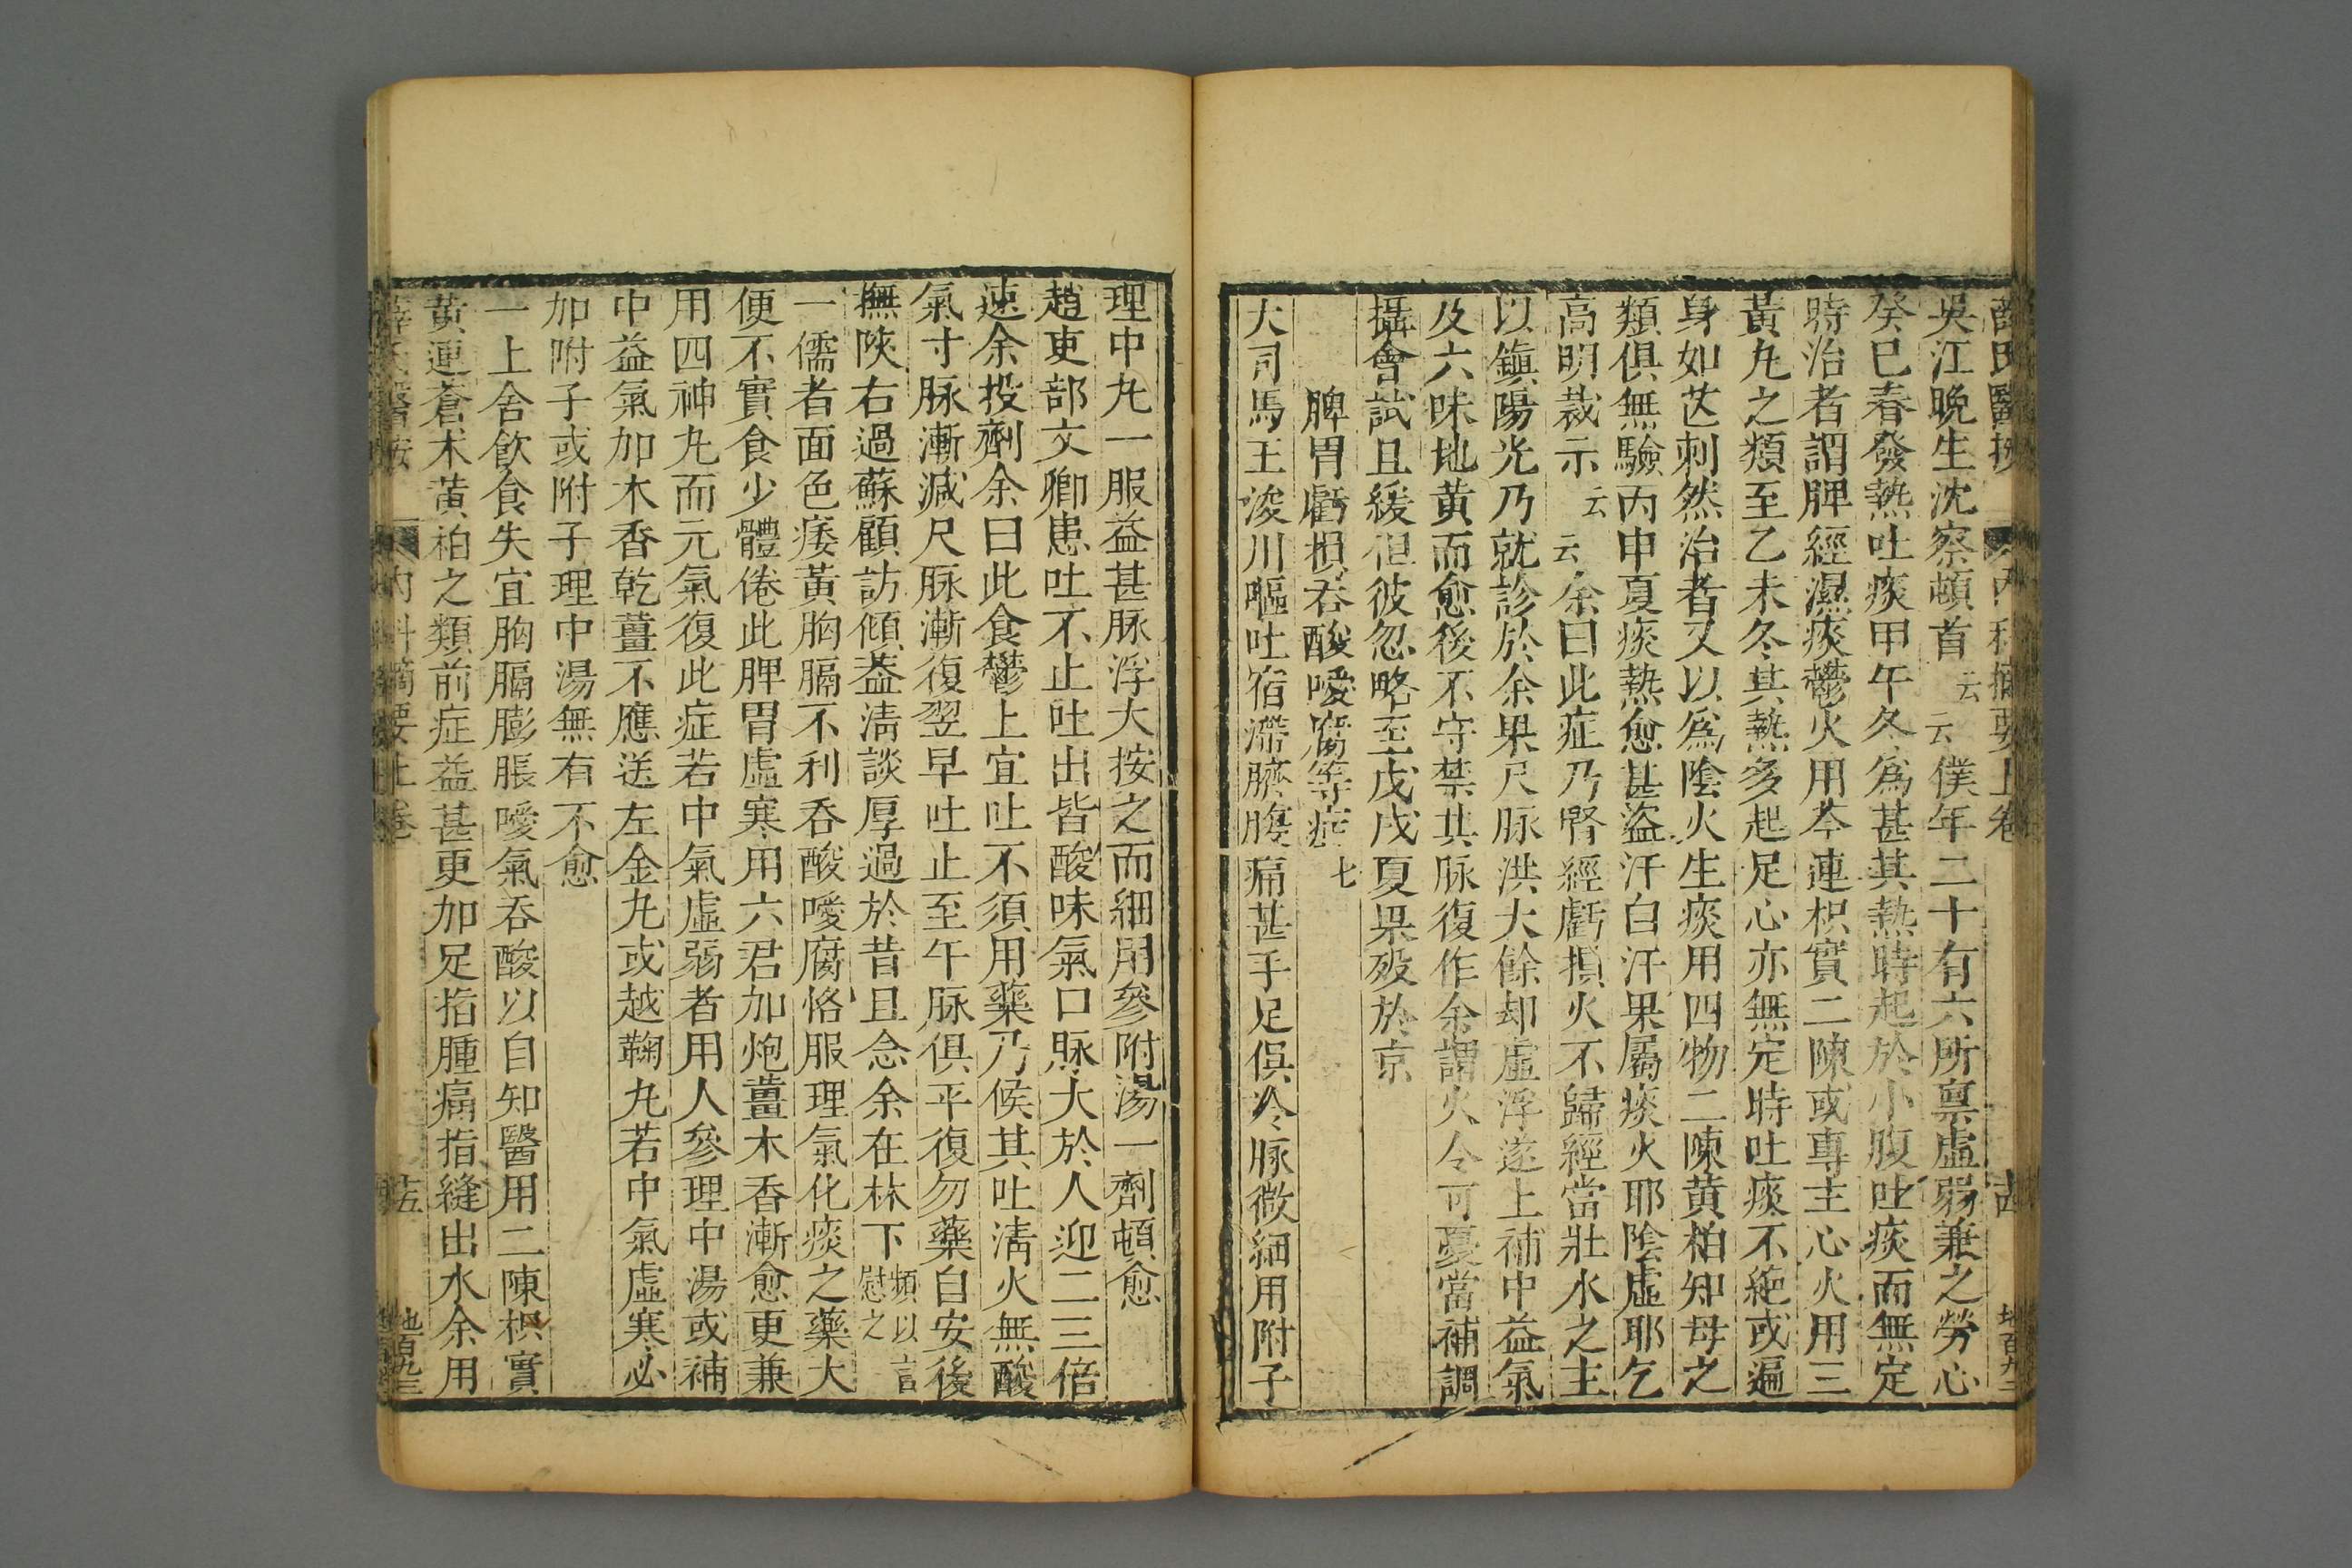 薛氏醫按 內科摘要上卷 十四 地百九二
吳江晚生沈察頓首云云僕年二十有六所禀虛弱兼之勞心
癸巳春發熱吐痰甲午冬爲甚其熱時起於小腹吐痰而無定
時治者謂脾經濕痰鬱火用芩連枳實二陳或專主心火用三
黃丸之類至乙未冬其熱多起足心亦無定時吐痰不絶或遍
身如芒刺然治者又以爲陰火生痰用四物二陳黄柏知母之
類俱無驗丙申夏痰熱愈甚盜汗自汗果屬痰火耶陰虛耶乞
高明裁示云云余曰此症乃腎經虧損火不歸經當壯水之主
以鎮陽光乃就診於余果尺脉洪大餘却虛浮遂用補中益氣
及六味地黄而愈後不守禁其脉復作余謂火令可憂當補調
攝會試且緩但彼忽略至戊戌夏果殁於京
脾胃虧損吞酸噯腐等症 七
大司馬王浚川嘔吐宿滯臍腹痛甚手足俱冷脉微細用附子
理中丸一服益甚脉浮大按之而細用參附湯一劑頓愈
趙吏部文卿患吐不止吐出皆酸味氣口脉大於人迎二三倍
速余投劑余曰此食鬱上宜吐不須用藥乃候其吐清火無酸
氣寸脉漸減尺脉漸復翌早吐止至午脉俱平復勿藥自安後
撫陝右過蘇顧訪傾蓋清談厚過於昔且念余在林下頻以言慰之
一儒者面色痿黃胸膈不利吞酸噯腐恪服理氣化痰之藥大
便不實食少體倦此脾胃虛寒用六君加炮薑木香漸愈更兼
用四神丸而元氣復此症若中氣虛弱者用人參理中湯或補
中益氣加木香乾薑不應送左金丸或越鞠丸若中氣虛寒必
加附子或附子理中湯無有不愈
一上舍飲食失宜胸膈膨脹噯氣吞酸以自知醫用二陳枳實
黄連蒼术黄柏之類前症益甚更加足指腫痛指縫出水余用
薛氏醫按 內科摘要上卷 十五 地百九三